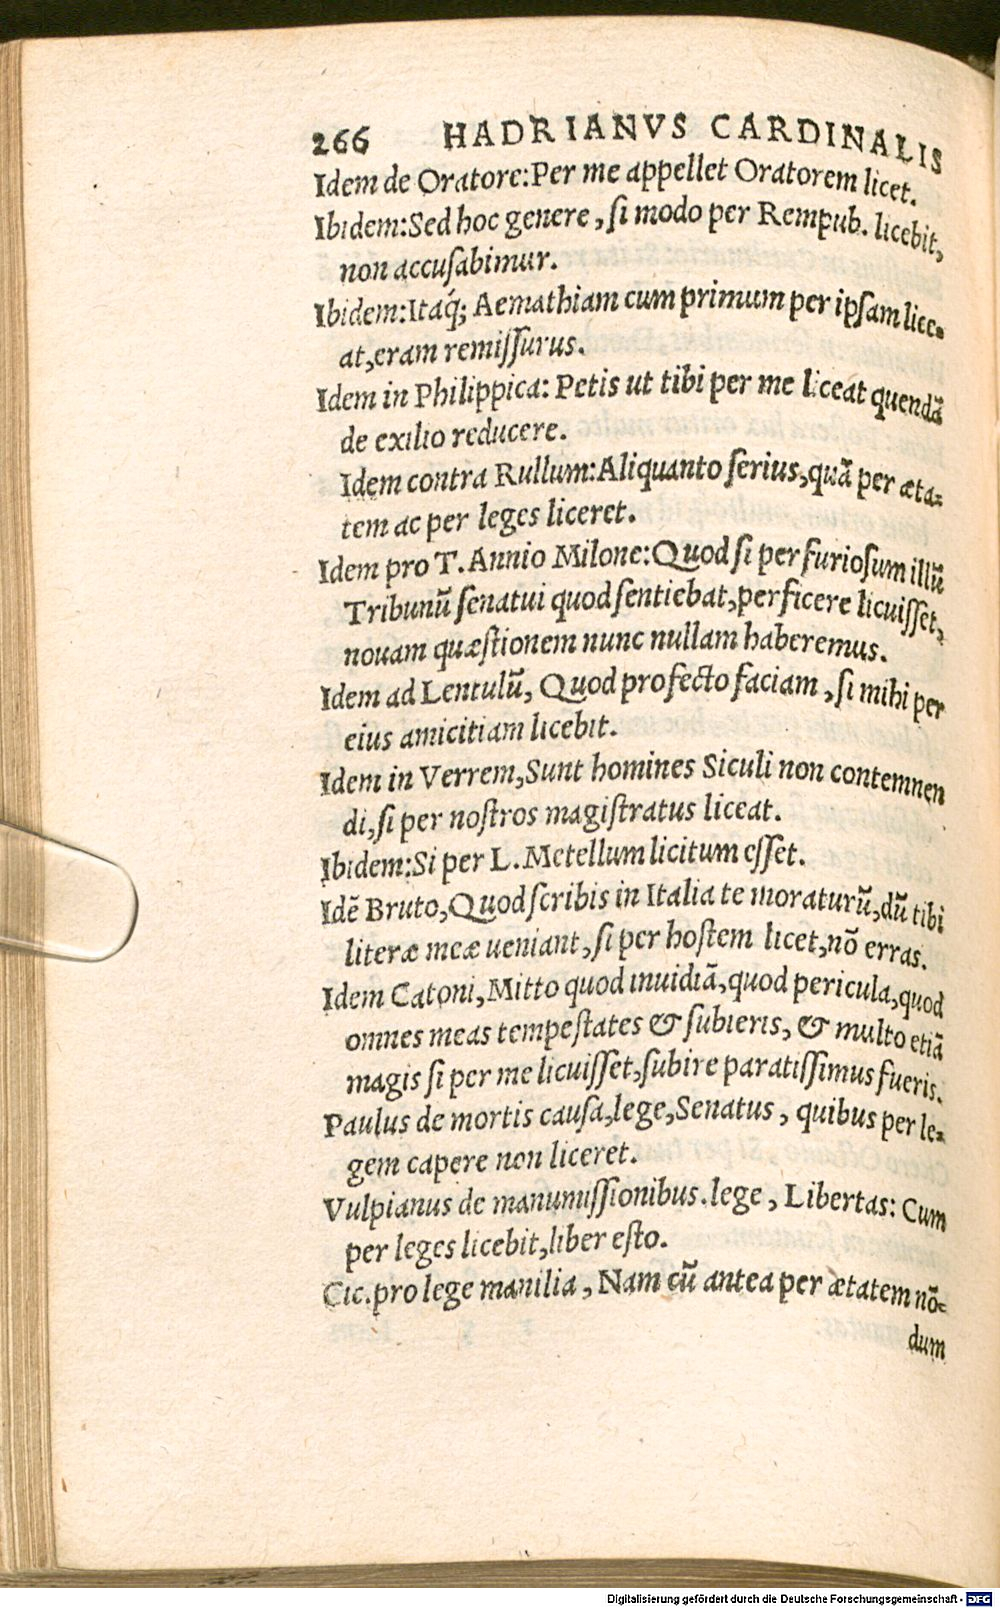 266 HADRIANVS CARDINALIS
Idem de Oratore:Per me appellet Oratorem licet.
Ibidem:Sed hoc genere, si modo per Rempub. licebit,
non accusabimur.
Ibidem:Itaq́; Aemathiam cum primum per ipsam lice-
at,eram remissurus.
Idem in Philippica: Petis ut tibi per me liceat quendã
de exilio reducere.
Idem contra Rullum:Aliquanto serius,quã per æta-
tem ac per leges liceret.
Idem pro T. Annio Milone:Quod si per furiosum illũ
Tribunũ senatui quod sentiebat,perficere licuisset,
nouam quæstionem nunc nullam haberemus.
Idem ad Lentulũ, Quod profecto faciam, si mihi per
eius amicitiam licebit.
Idem in Verrem,Sunt homines Siculi non contemnen
di,si per nostros magistratus liceat.
Ibidem:Si per L. Metellum licitum esset.
Idẽ Bruto,Quod scribis in Italia te moraturũ,dũ tibi
literæ meæ ueniant, si per hostem licet,nõ erras.
Idem Catoni,Mitto quod inuidiã,quod pericula,quod
omnes meas tempestates & subieris, & multo etiã
magis si per me licuisset,subire paratissimus fueris.
Paulus de mortis causa,lege,Senatus, quibus per le-
gem capere non liceret.
Vulpianus de manumissionibus.lege, Libertas: Cum
per leges licebit,liber esto.
Cic.pro lege manilia, Nam cũ antea per ætatem nõ-
dum
Digitalisierung gefördert durch die Deutsche Forschungsgemeinschaft - DFG